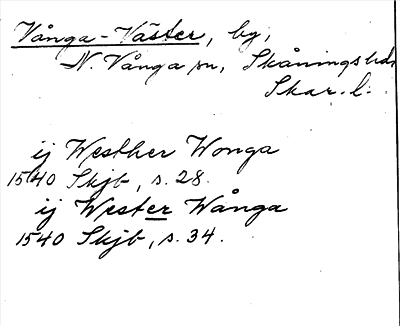 Vånga-Väster, by,
N. Vånga sn, Skånings hd
Skar. l.
ij Westher Wonga
1540 Skjb, s. 28.
ij Wester Wånga
1540 Skjb, s. 34.